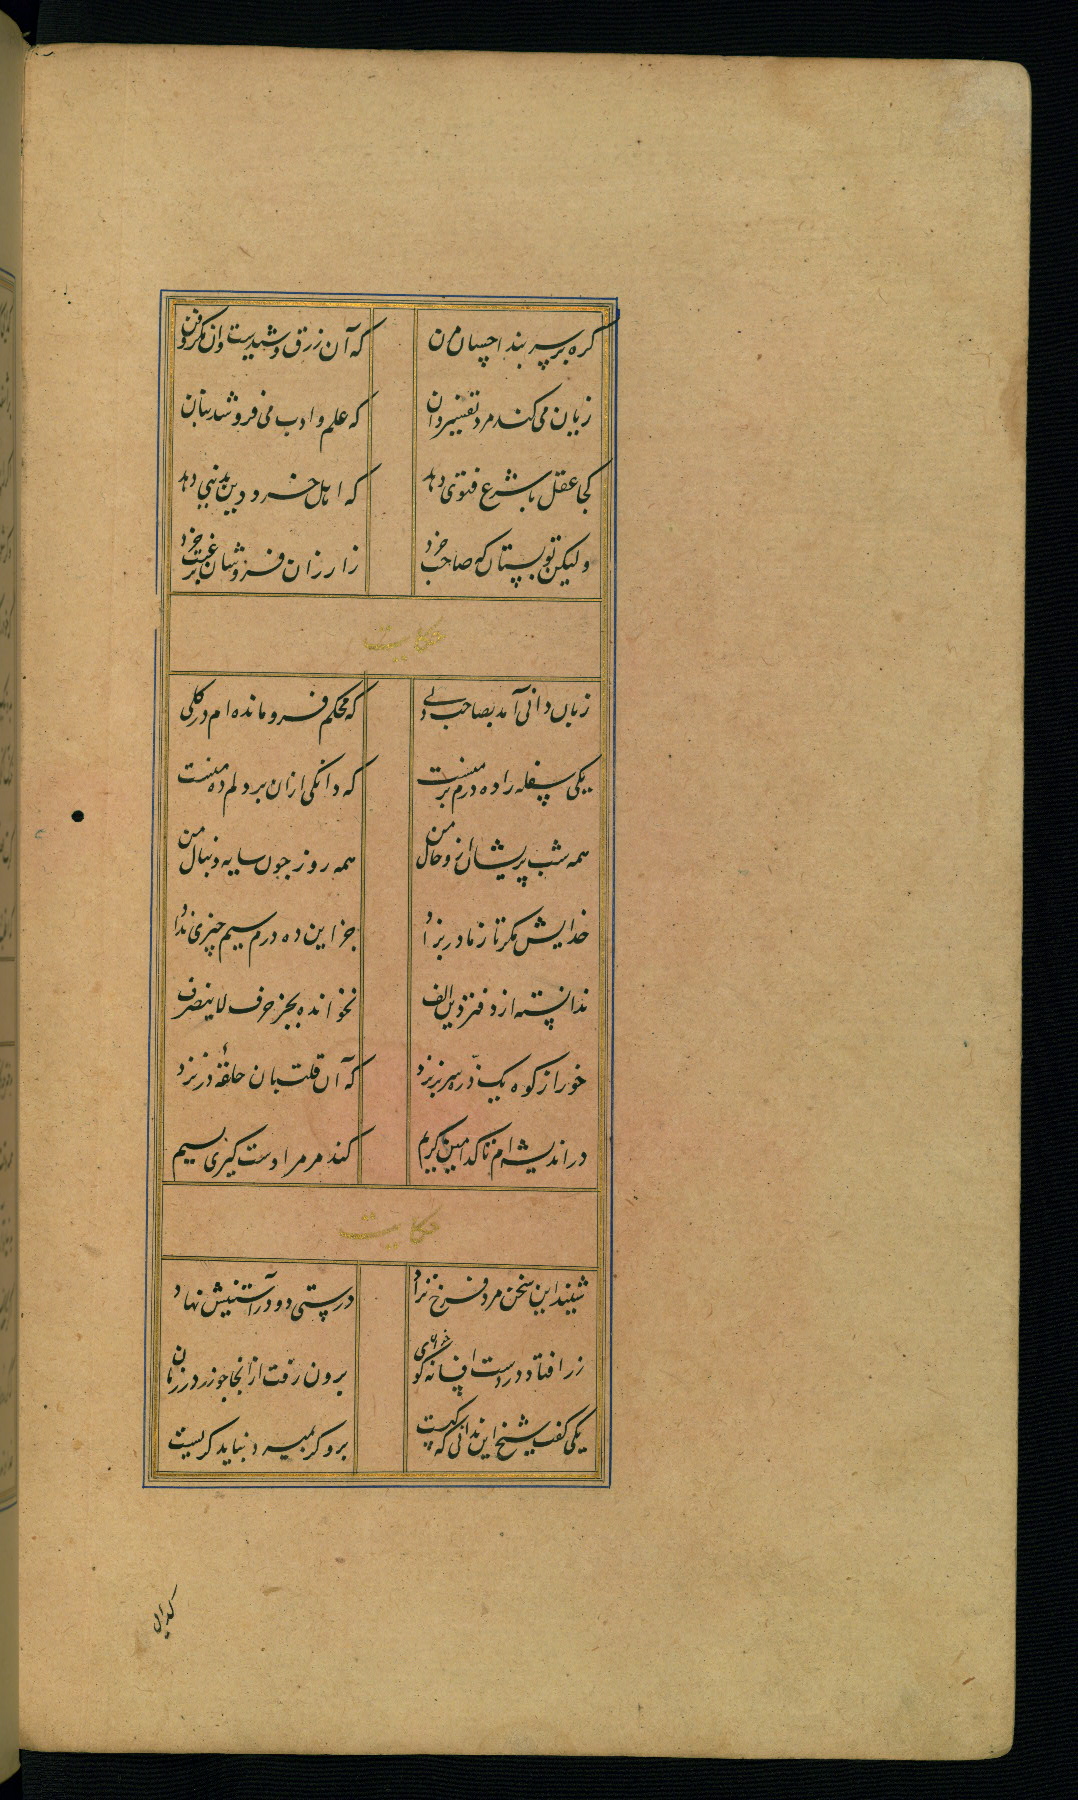 گره بر سر بند احسان مزن که آن زرق و شیدست و آن مکر و فن
زیان می کند مرد تفسیردان که علم و ادب می فروشد بنان
کجا عقل با شرع فتوی دهد که اهل خرد دین بدنیی دهد
ولیکن تو بستان که صاحب خرد از ارزان فروشان برغبت خرد
حکایت
زبان دانی آمد بصاحب دلی که محکم فرو مانده ام در گلی
یکی سفله را ده درم بر منست که دانکی ازان بر دلم ده منست
همه شب پریشان ازو حال من همه روز چون سایه دنبال من
خدایش مگر تا ز مادر بزاد جز این ده درم سیم چیزی نداد
ندانسته از دفتر دین الف نخوانده بجز حرف لاینصرف
خور از کوه یک ذره سر بر نزد که آن قلتبان حلقه در نزد
در اندیشه ام تا کدامین کریم کند مر مرا دست گیری بسیم
حکایت
شنید این سخن مرد فرخ نژاد درستی دو در آستینش نهاد
زر افتاد در دست افسانه گوی برون رفت از آنجا چو زر
یکی گفت شیخ این ندانی که کیست برو گر بمیرد نباید گریست